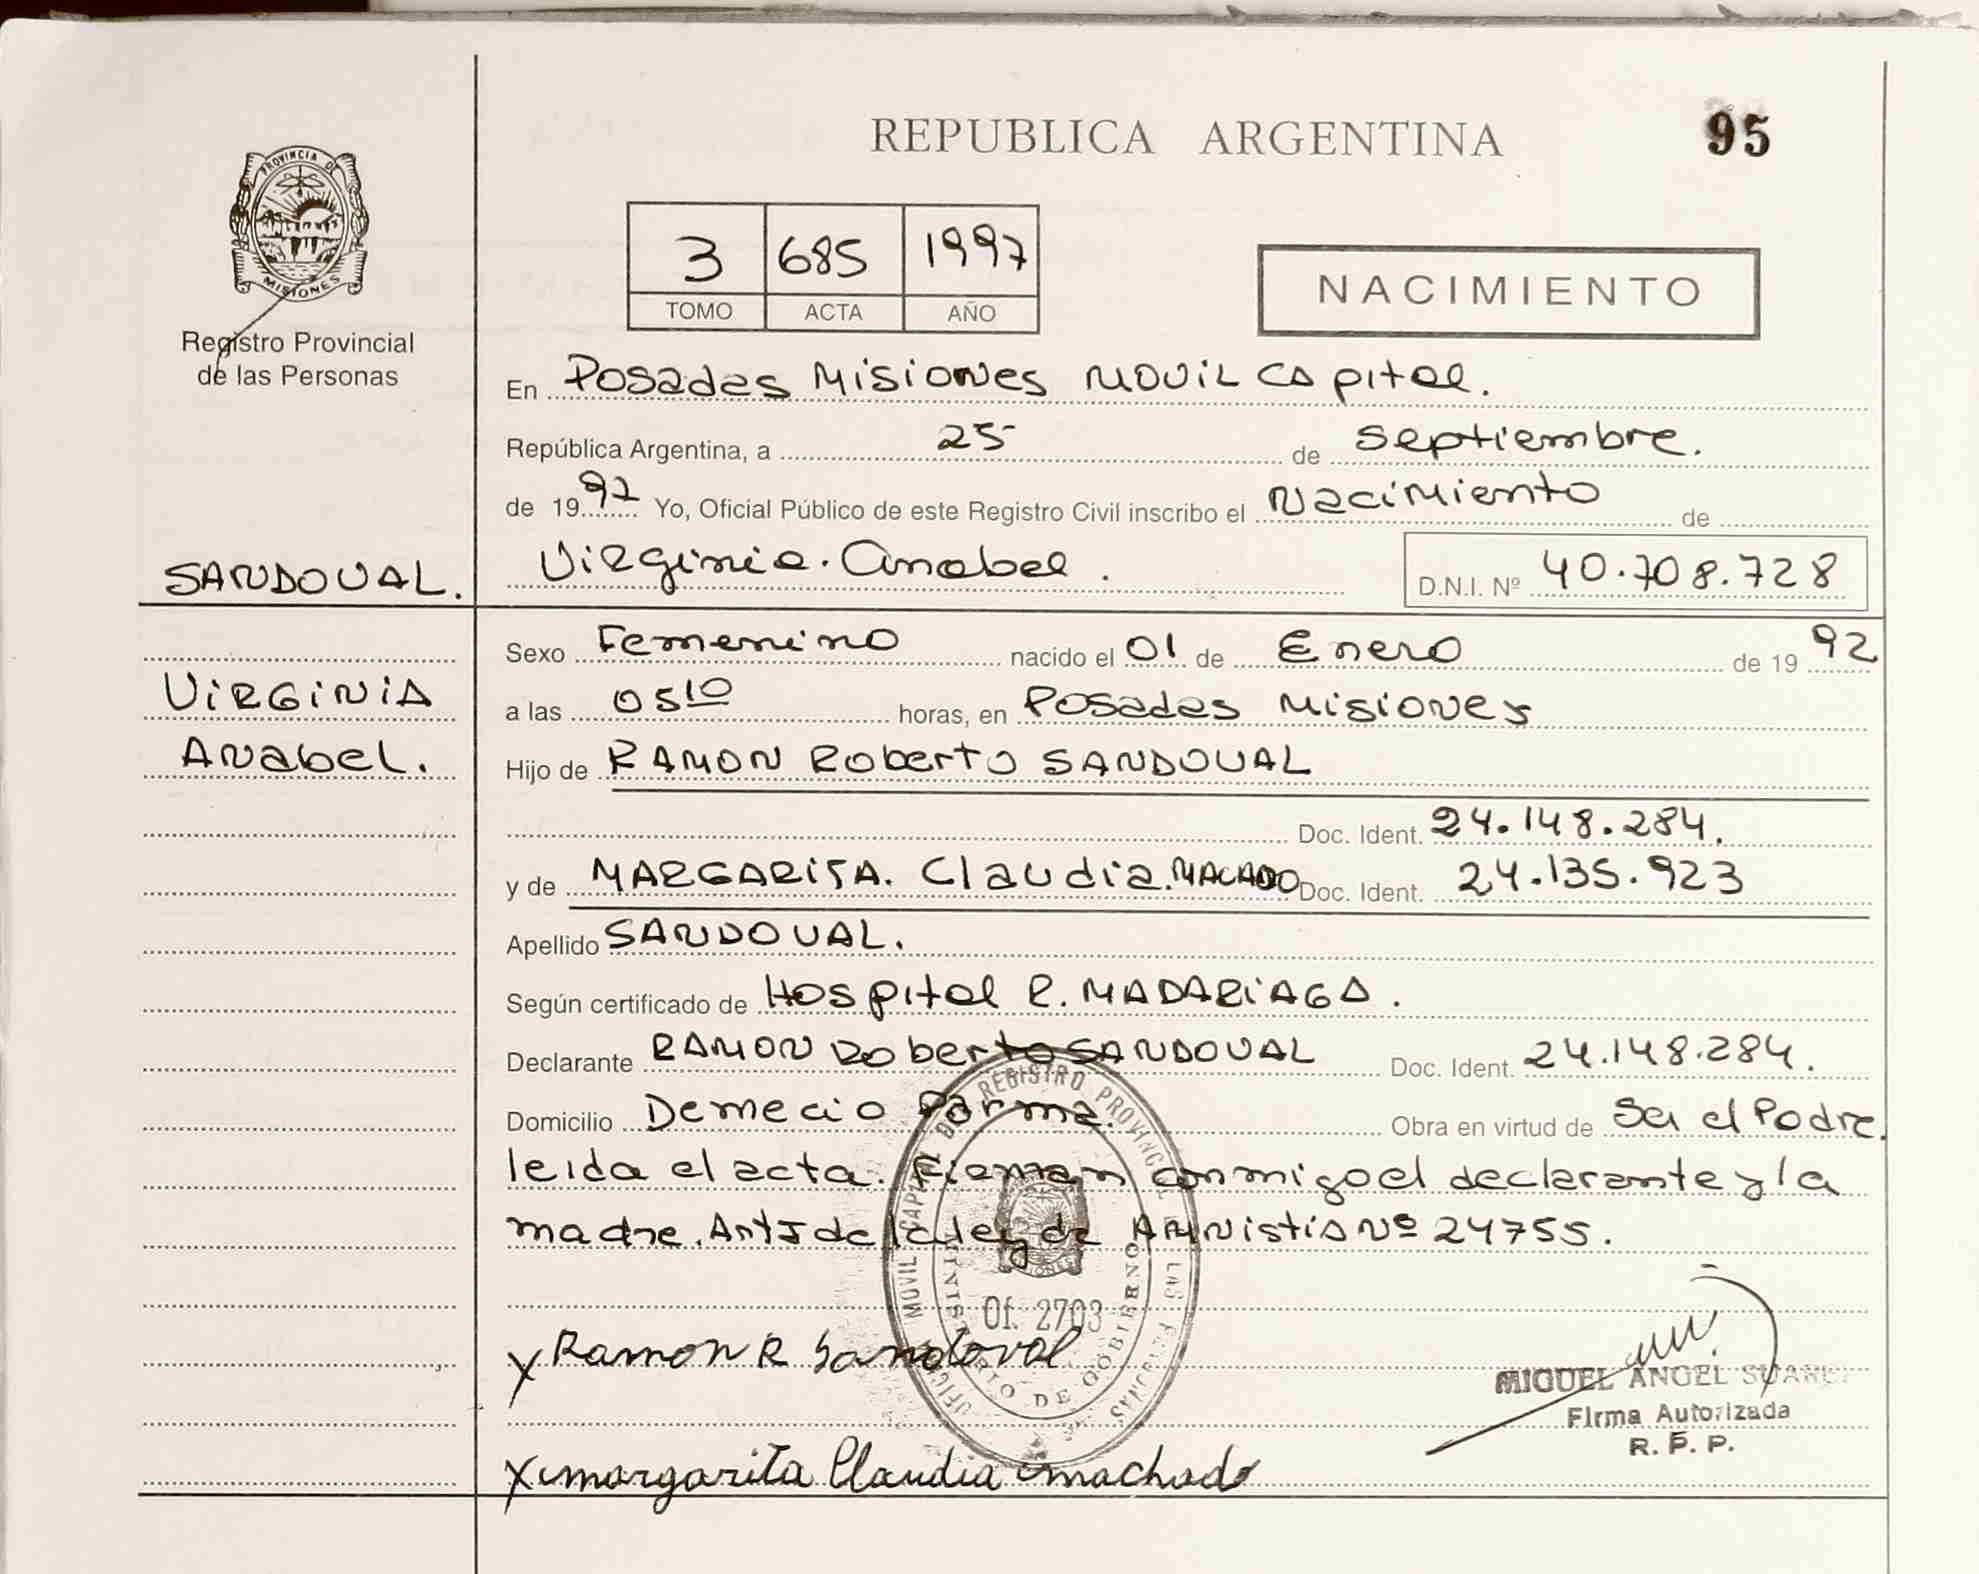 REPUBLICA ARGENTINA
95
PROVINCIA DE
MISIONES
Registro Provincial
de las Personas
3 685 1997
TOMO ACTA AÑO
NACIMIENTO
En Posadas Misiones MOVIL CApital.
República Argentina, a 25 de septiembre.
de 1997 Yo, Oficial Público de este Registro Civil inscribo el Nacimiento de
SANDOVAL.
Virginia. Anabel.
D.N.I. Nº 40.708.728
Sexo Femenino nacido el 01 de Enero de 1992
VIRGINIA
a las 05 10 horas, en Posadas Misiones
Anabel.
Hijo de RAMON Roberto SANDOVAL
Doc. Ident. 24.148.284.
y de MARGARITA. Claudia. MACADO Doc. Ident. 24.135.923
Apellido SANDOVAL.
Según certificado de Hospital R. MADARIAGA.
Declarante RAMON Roberto SANDOVAL Doc. Ident. 24.148.284.
Domicilio Demecio Parma. Obra en virtud de Ser el Padre.
leida el acta. Firman conmigo el declarante y la
madre. Art 5 de la ley de Amnistia Nº 24755.
OFICINA MOVIL CAPITAL DE REGISTRO PROVINCIAL DE LAS PERSONAS
MINISTERIO DE GOBIERNO
Of. 2703
x Ramon R Sandoval
MIGUEL ANGEL SUAREZ
Firma Autorizada
R. P. P.
x margarita Claudia machado